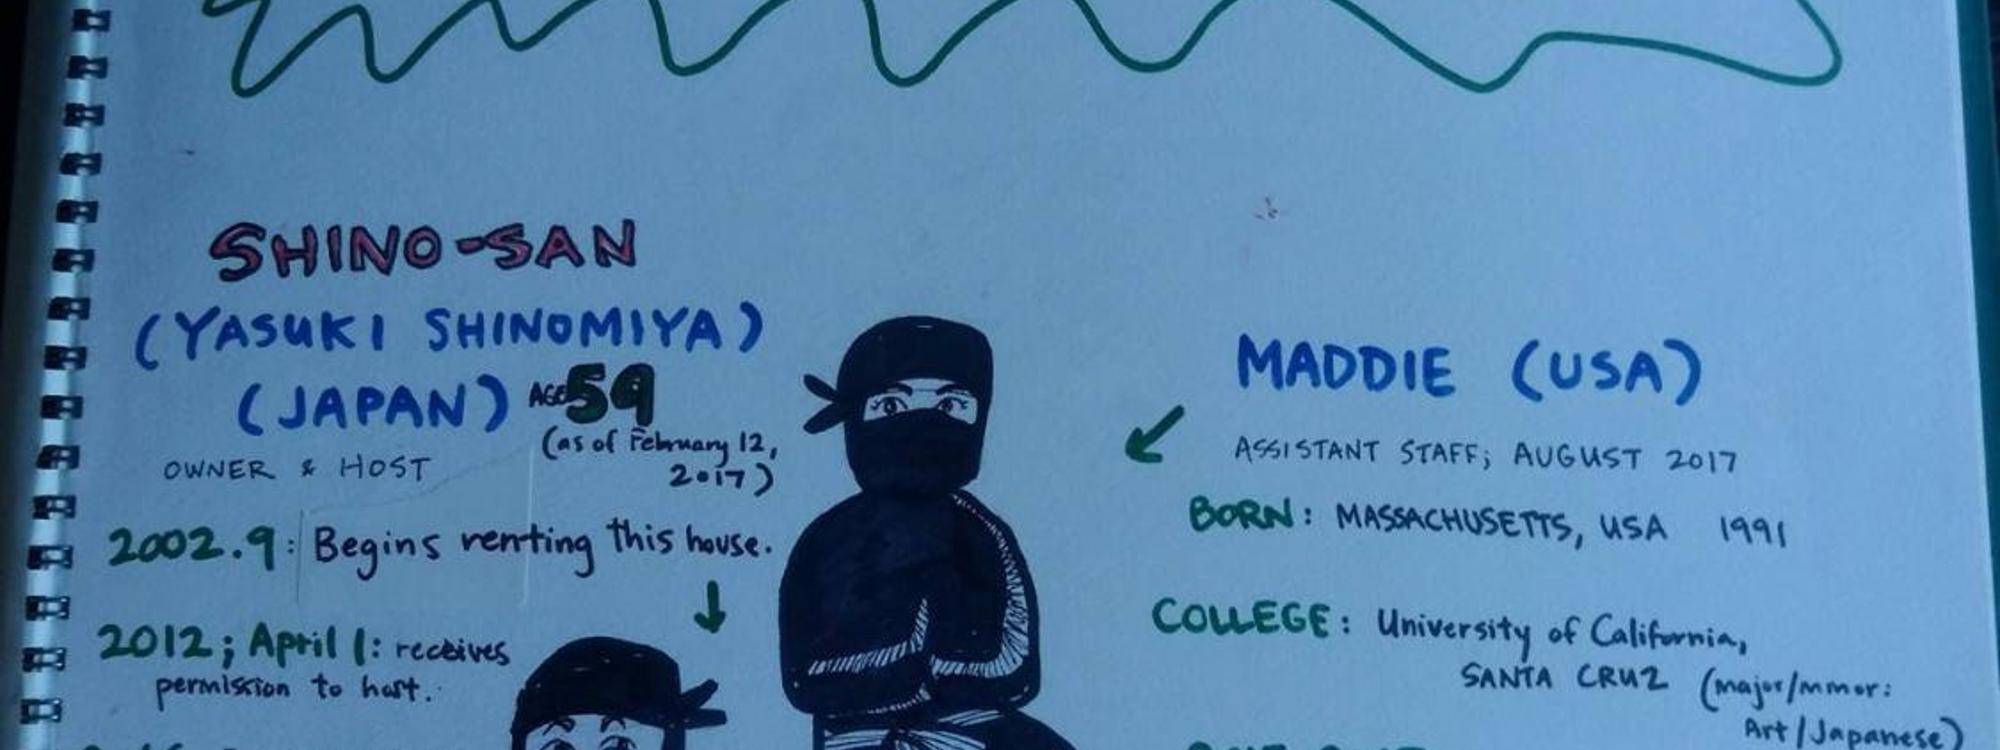 SHINO-SAN
(YASUKI SHINOMIYA)
(JAPAN) AGE 59
(as of February 12,
2017)
OWNER & HOST
2002.9: Begins renting this house.
2012; April 1: receives
permission to host.
MADDIE (USA)
ASSISTANT STAFF; AUGUST 2017
BORN: MASSACHUSETTS, USA 1991
COLLEGE: University of California,
SANTA CRUZ (major/minor:
Art/Japanese)